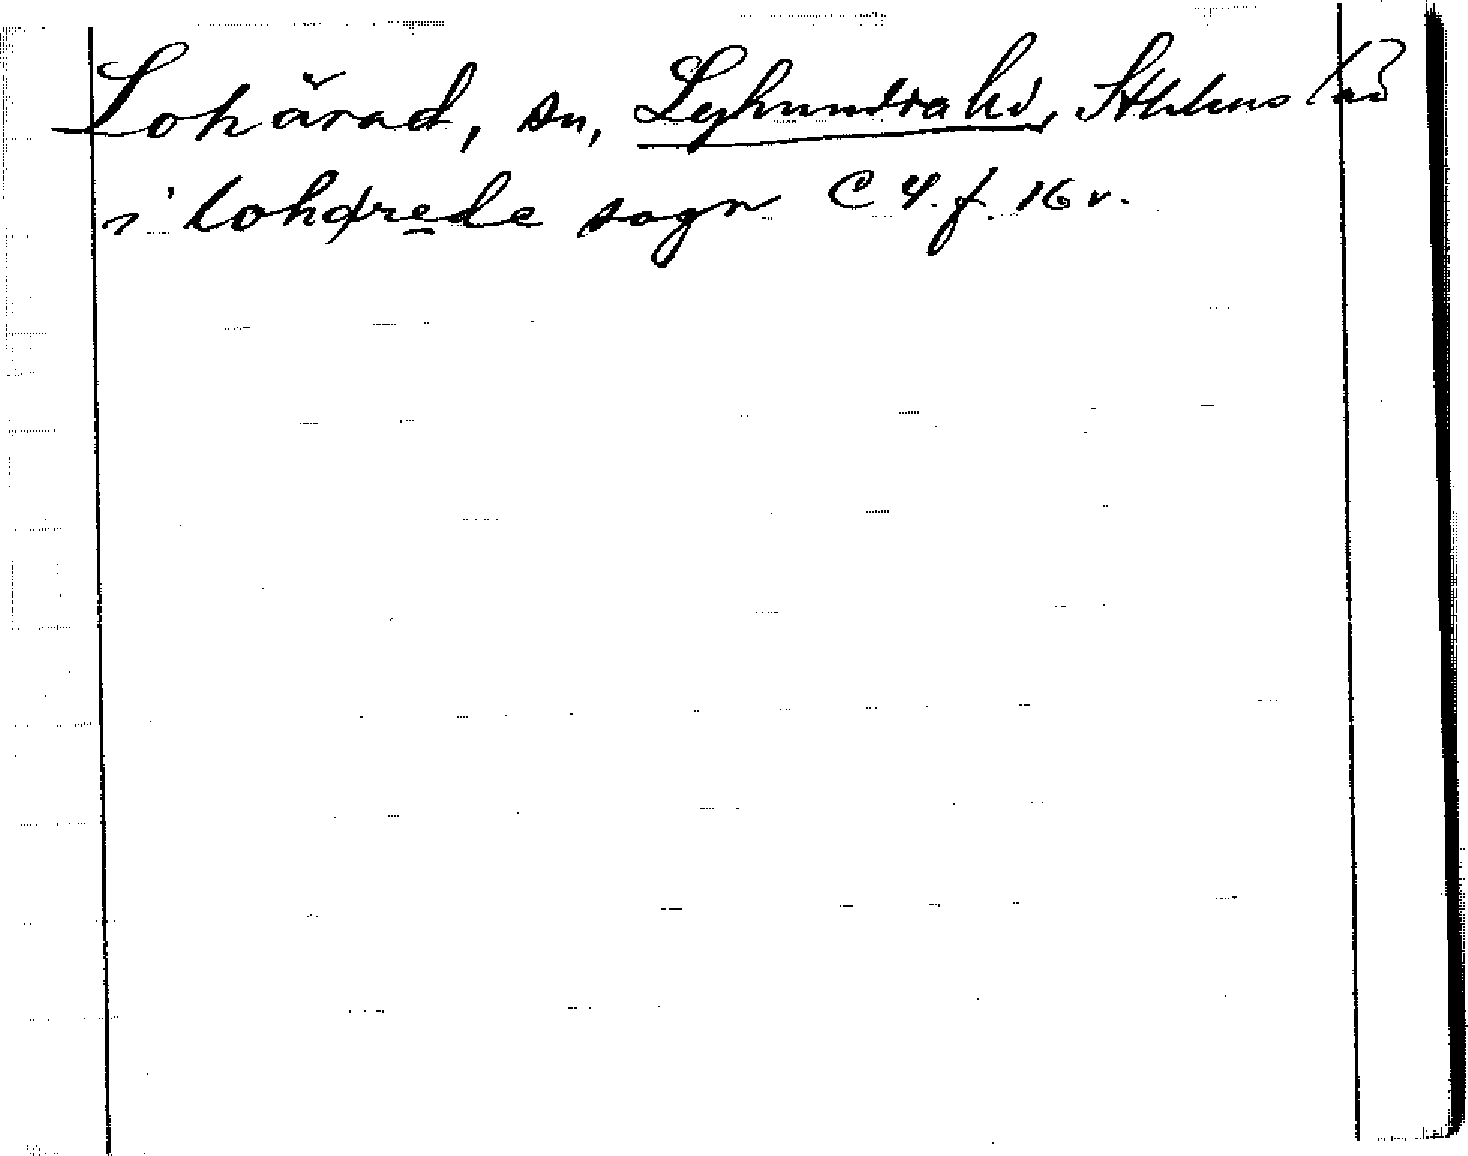 Lohärad, sn, Lyhundra hd, Sthlms län
i lohørede sogn C 4. f. 16 v.